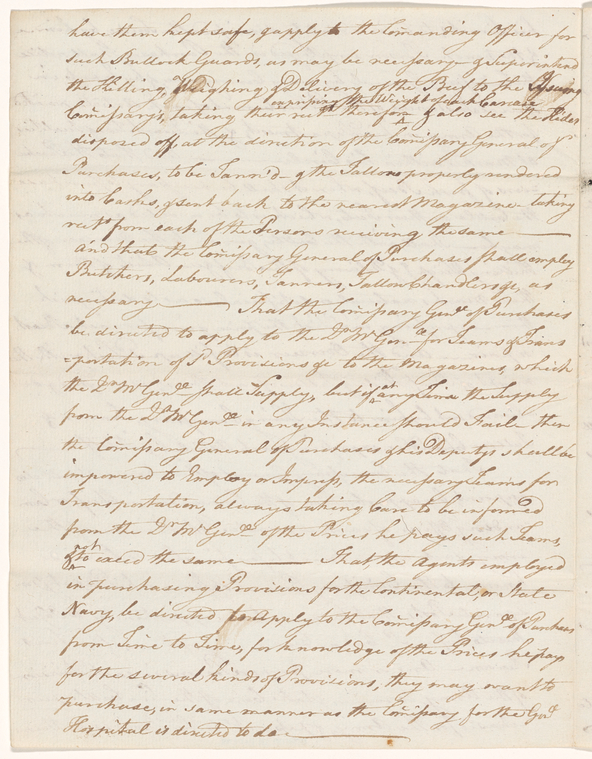 have them kept safe, & apply to the Comanding Officer for
such Bullock Guards, as may be necessary & Superintend
the Killing, Weighing & Delivery of the Beef to the Issuing
expressing the Weight of each Carcase
Comissary's, taking their rect. therefor & also see the Hides
disposed off, at the direction of the Comissary General of
Purchases, to be Tann'd & the Tallow properly rendered
into Casks, & sent back to the nearest Magazine taking
rects. from each of the Persons receiving the same
and that the Comissary General of Purchases shall employ
Butchers, Labourers, Tanners, Tallow Chandlers &c, as
necessary That the Comissary Genl. of Purchases
be directed to apply to the Qr. Mr. Genl. for Teams & Trans
=portation of Provisions &c to the Magazines, which
the Qr. Mr. Genl. shall Supply, but if at any Time the Supply
from the Qr. Mr. Genl. in any Instance should Fail then
the Comissary General of Purchases & his Deputys shall be
impowered to Employ or Impress, the necessary Teams for
Transportation, always taking Care to be informed
from the Qr. Mr. Genl. of the Prices he pays such Teams,
& not to exceed the same That the Agents employed
in purchasing Provisions for the Continental, or State
Navy, be directed to apply to the Comissary Genl. of Purchases
from Time to Time, for knowledge of the Prices he pay
for the several kinds of Provisions, they may want to
purchase, in same manner as the Comissary for the Genl.
Hospital is directed to do